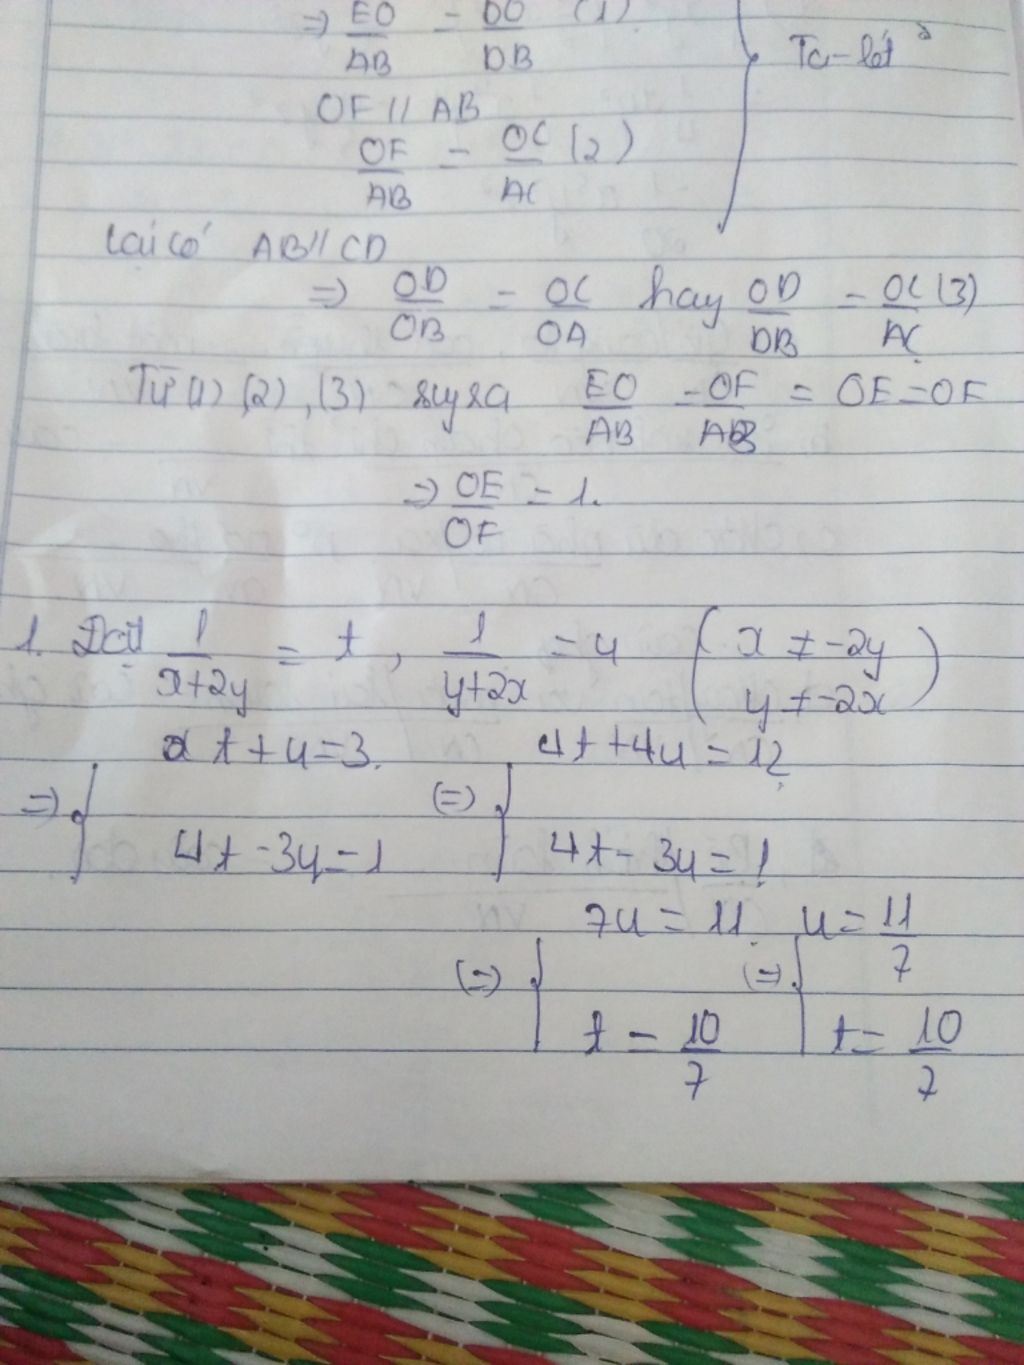 => EO/AB = DO/DB (1)
Ta-lét
OF // AB
OF/AB = OC/AC (2)
Lại có AB // CD
=> OD/OB = OC/OA hay OD/DB = OC/AC (3)
Từ (1) (2), (3) suy ra EO/AB = OF/AB = OE = OF
=> OE/OF = 1.
1. Đặt 1/(x+2y) = t, 1/(y+2x) = u (x ≠ -2y
y ≠ -2x)
t + u = 3. 4t + 4u = 12
=> { (=) {
4t - 3u = 1 4t - 3u = 1
7u = 11 u = 11/7
(=) { (=) {
t = 10/7 t = 10/7